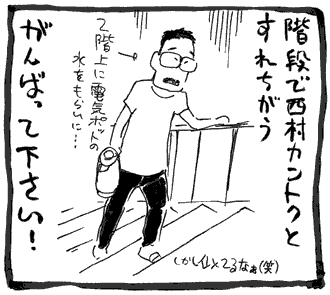 階段で西村カントクと
すれちがう
2階上に電気ポットの
水をもらいに…
がんばって下さい！
しかし仙人てるなぁ(笑)